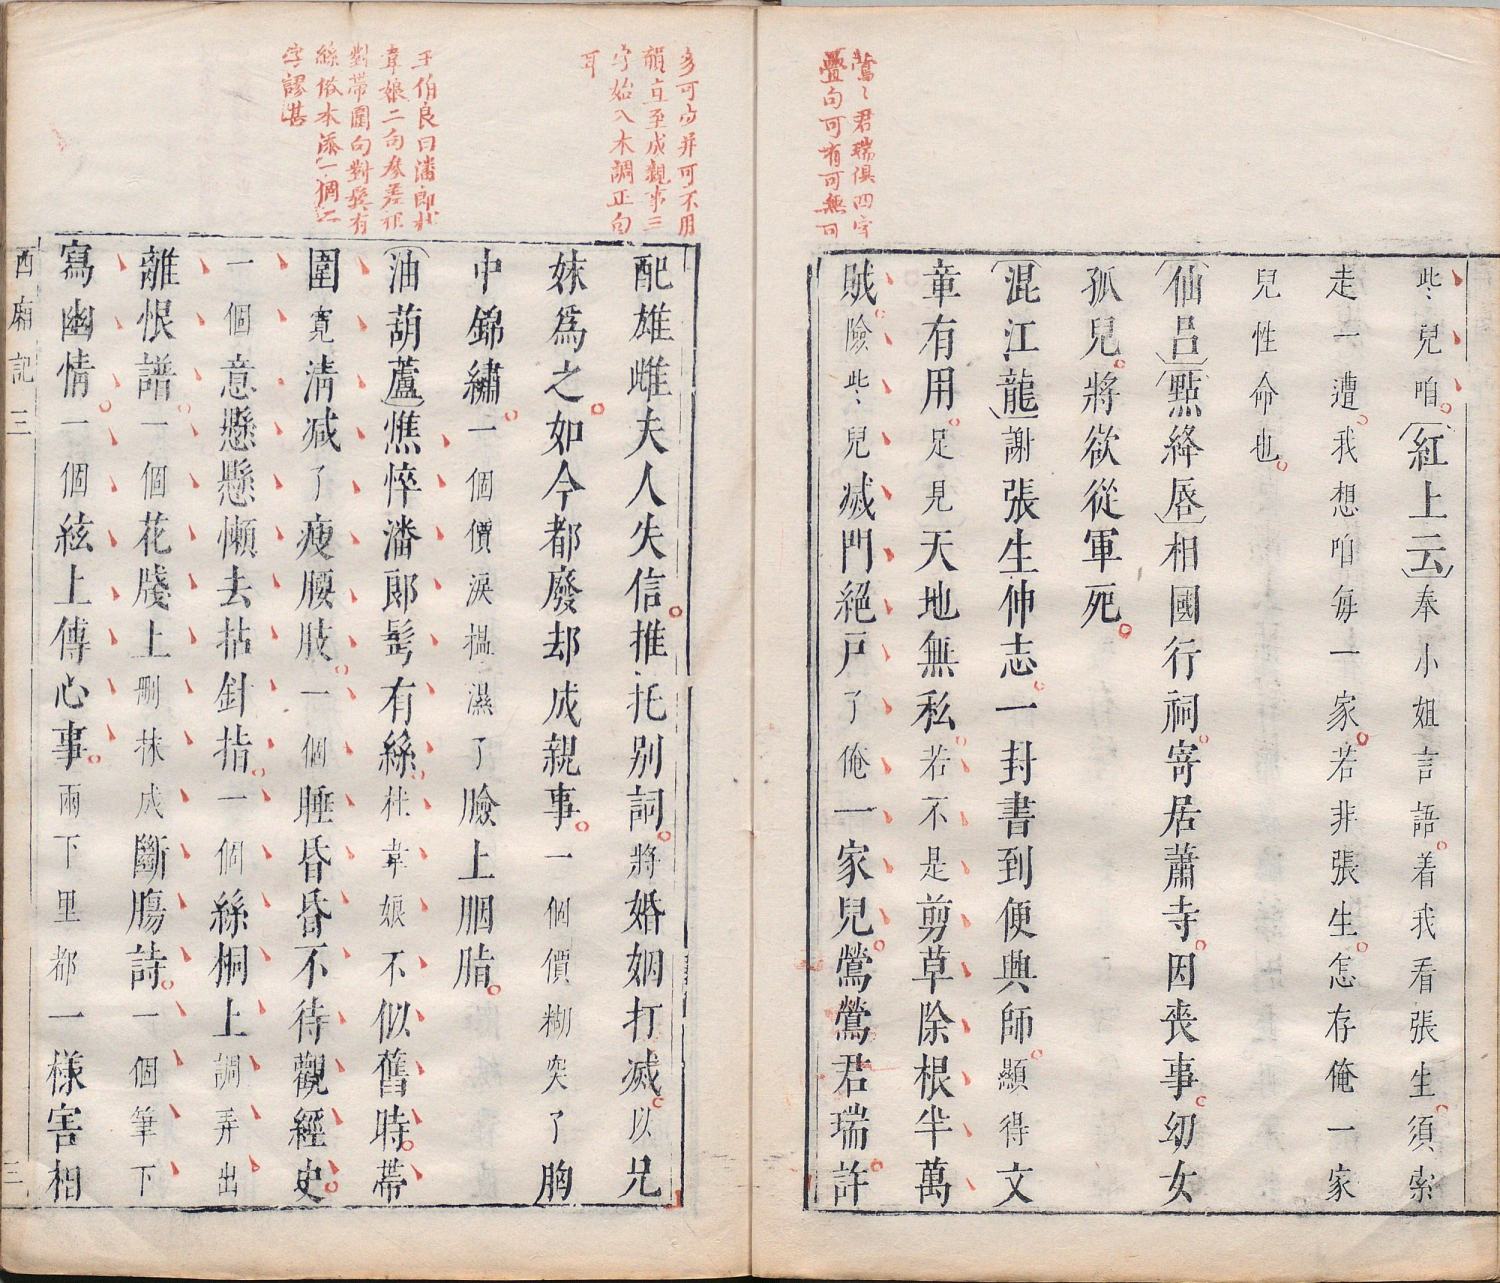 鶯〻君瑞俱四字
疊句可有可無可
些〻兒咱。（紅上云）奉小姐言語。着我看張生。須索
走一遭。我想咱每一家。若非張生。怎存俺一家
兒性命也。
（仙呂）（點絳唇）相國行祠。寄居蕭寺。因丧事。幼女
孤兒。將欲從軍死。
（混江龍）謝張生伸志。一封書到便興師。顯得文
章有用。足見天地無私。若不是剪草除根半萬
賊。險些〻兒滅門絕戶了俺一家兒。鶯鶯君瑞。許
多可卩并可不用
韻直至成親事三
字始入本調正句
耳
王伯良曰潘郎杜
韋娘二句參差祗
對帶圍句對鬂有
絲俗本添一個二
字謬甚
配雄雌夫人失信。推托別詞。將婚姻打滅。以兄
妹爲之。如今都廢却成親事。一個價糊突了胸
中錦繡。一個價淚搵濕了臉上胭脂。
（油葫蘆）憔悴潘郎髩有絲。杜韋娘不似舊時。帶
圍寬清减了瘦腰肢。一個睡昏昏不待觀經史。
一個意懸懸懶去拈針指。一個絲桐上調弄出
離恨譜。一個花牋上刪抹成斷腸詩。一個筆下
寫幽情。一個絃上傳心事。兩下里都一樣害相
西廂記三
三